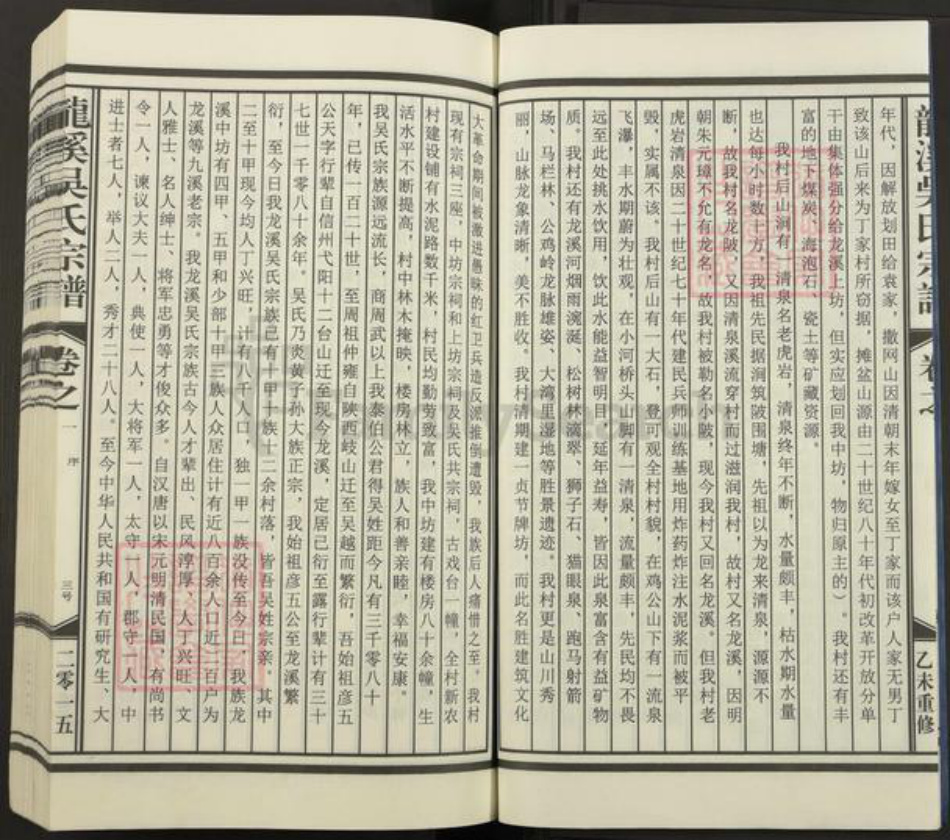 龍溪吳氏宗譜
卷之
乙未重修
年代，因解放划田给袁家，撒网山因清朝末年嫁女至丁家而该户人家无男丁
致该山后来为丁家村所窃据，摊盆山源由二十世纪八十年代初改革开放分单
干由集体强分给龙溪上坊，但实应划回我中坊，物归原主的）。我村还有丰
富的地下煤炭、海泡石、瓷土等矿藏资源。
我村后山涧有一清泉名老虎岩，清泉终年不断，水量颇丰，枯水期水量
也达每小时数十方，我祖先民据涧筑陂围塘，先祖以为龙来清泉，源源不
断，故我村名龙陂，又因清泉溪流穿村而过滋润我村，故村又名龙溪，因明
朝朱元璋不允有龙名，故我村被勒名小陂，现今我村又回名龙溪。但我村老
虎岩清泉因二十世纪七十年代建民兵师训练基地用炸药炸注水泥浆而被平
毁，实属不该。我村后山有一大石，登可观全村村貌，在鸡公山下有一流泉
飞瀑，丰水期蔚为壮观，在小河桥头山脚有一清泉，流量颇丰，先民均不畏
远至此处挑水饮用，饮此水能益智明目，延年益寿，皆因此泉富含有益矿物
质。我村还有龙溪河烟雨涴涎、松树林滴翠、狮子石、猫眼泉、跑马射箭
场、马栏林、公鸡岭龙脉雄姿、大湾里湿地等胜景遗迹。我村更是山川秀
丽，山脉龙象清晰，美不胜收。我村清期建一贞节牌坊，而此名胜建筑文化
大革命期间被激进愚昧的红卫兵造反派推倒遭毁，我族后人痛惜之至。我村
现有宗祠三座，中坊宗祠和上坊宗祠及吴氏共宗祠，古戏台一幢，全村新农
村建设铺有水泥路数千米，村民均勤劳致富，我中坊建有楼房八十余幢，生
活水平不断提高，村中林木掩映，楼房林立，族人和善亲睦，幸福安康。
我吴氏宗族源远流长，商周武以上我泰伯公君得吴姓距今凡有三千零八十
年，已传一百二十世，至周祖仲雍自陕西岐山迁至吴越而繁衍，吾始祖彦五
公天字行辈自信州弋阳十二台山迁至现今龙溪，定居已衍至露行辈计有三十
七世一千零八十余年。吴氏乃炎黄子孙大族正宗，我始祖彦五公至龙溪繁
衍，至今日我龙溪吴氏宗族已有十甲十族十二余村落，皆吾吴姓宗亲，其中
二至十甲现今均人丁兴旺，计有八千人口，独一甲一族没传至今日，我族龙
溪中坊有四甲、五甲和少部十甲三族人众居住计有近八百余人口近二百户为
龙溪等九溪老宗。我龙溪吴氏宗族古今人才辈出、民风淳厚、人丁兴旺、文
人雅士、名人绅士、将军忠勇等才俊众多。自汉唐以宋元明清民国，有尚书
令一人，谏议大夫一人，典使一人，大将军一人，太守一人，郡守一人，中
进士者七人，举人二人，秀才二十八人。至今中华人民共和国有研究生、大
龍溪吳氏宗譜
卷之一
序
三号
二零一五